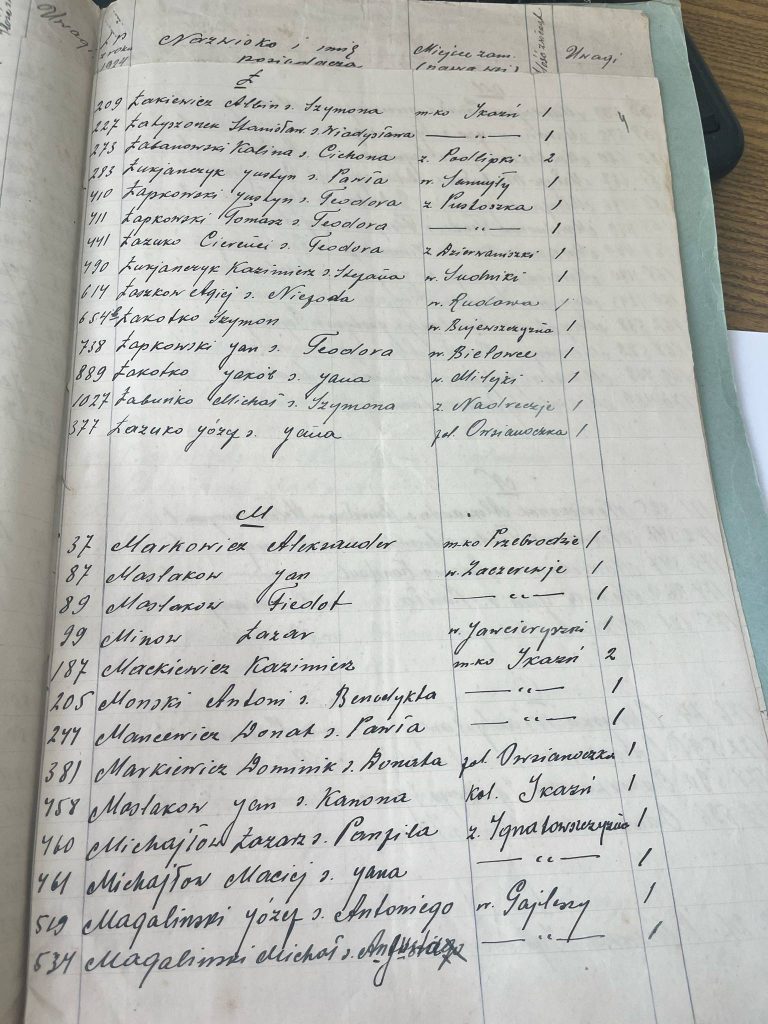 Uwagi
Nazwisko i imię
posiadacza
Miejsce zam.
(nazwa wsi)
Uwagi
Ł
209 Łakiewicz Albin s. Szymona m-ko Ikaźń 1
227 Łatyszonek Stanisław s. Władysława — „ — 1
273 Łabanowski Kalina s. Cichona z. Podlipki 2
283 Łukjańczyk Justyn s. Pawła w. 1
410 Łapkowski Justyn s. Teodora z Pustoszka 1
411 Łapkowski Tomasz s. Teodora — „ — 1
441 Łazuko s. Teodora z Dzierwaniszki 1
490 Łukjańczyk Kazimierz s. Stefana w. Sudniki 1
614 Łaszkow s. w. Rudawa 1
654 Łakotko Szymon w. Bujewszczyzna 1
738 Łapkowski Jan s. Teodora w. Bielowce 1
889 Łakotko Jakób s. Jana w. Milejki 1
1027 Łabuńko Michał s. Szymona z. Nadrzeczje 1
377 Łazuko Józef s. Jana fol. Owsianoczka 1
M
37 Markowicz Aleksander m-ko Przebrodzie 1
87 Maslakow Jan w. Zaczerewje 1
89 Maslakow Fiedot — „ — 1
99 Minow Łazar w. 1
187 Mackiewicz Kazimierz m-ko Ikaźń 2
205 Monski Antoni s. Benedykta — „ — 1
244 Mancewicz Donat s. Pawła — „ — 1
381 Markiewicz Dominik s. Donata fol. Owsianoczka 1
458 Maslakow Jan s. Kanona kol. Ikaźń 1
460 Michajłow Łazarz s. Panfila z. Ignatowszczyzna 1
461 Michajłow Maciej s. Jana — „ — 1
519 Magalinski Józef s. Antoniego w. Gajleszy 1
534 Magalinski Michał s. — „ — 1